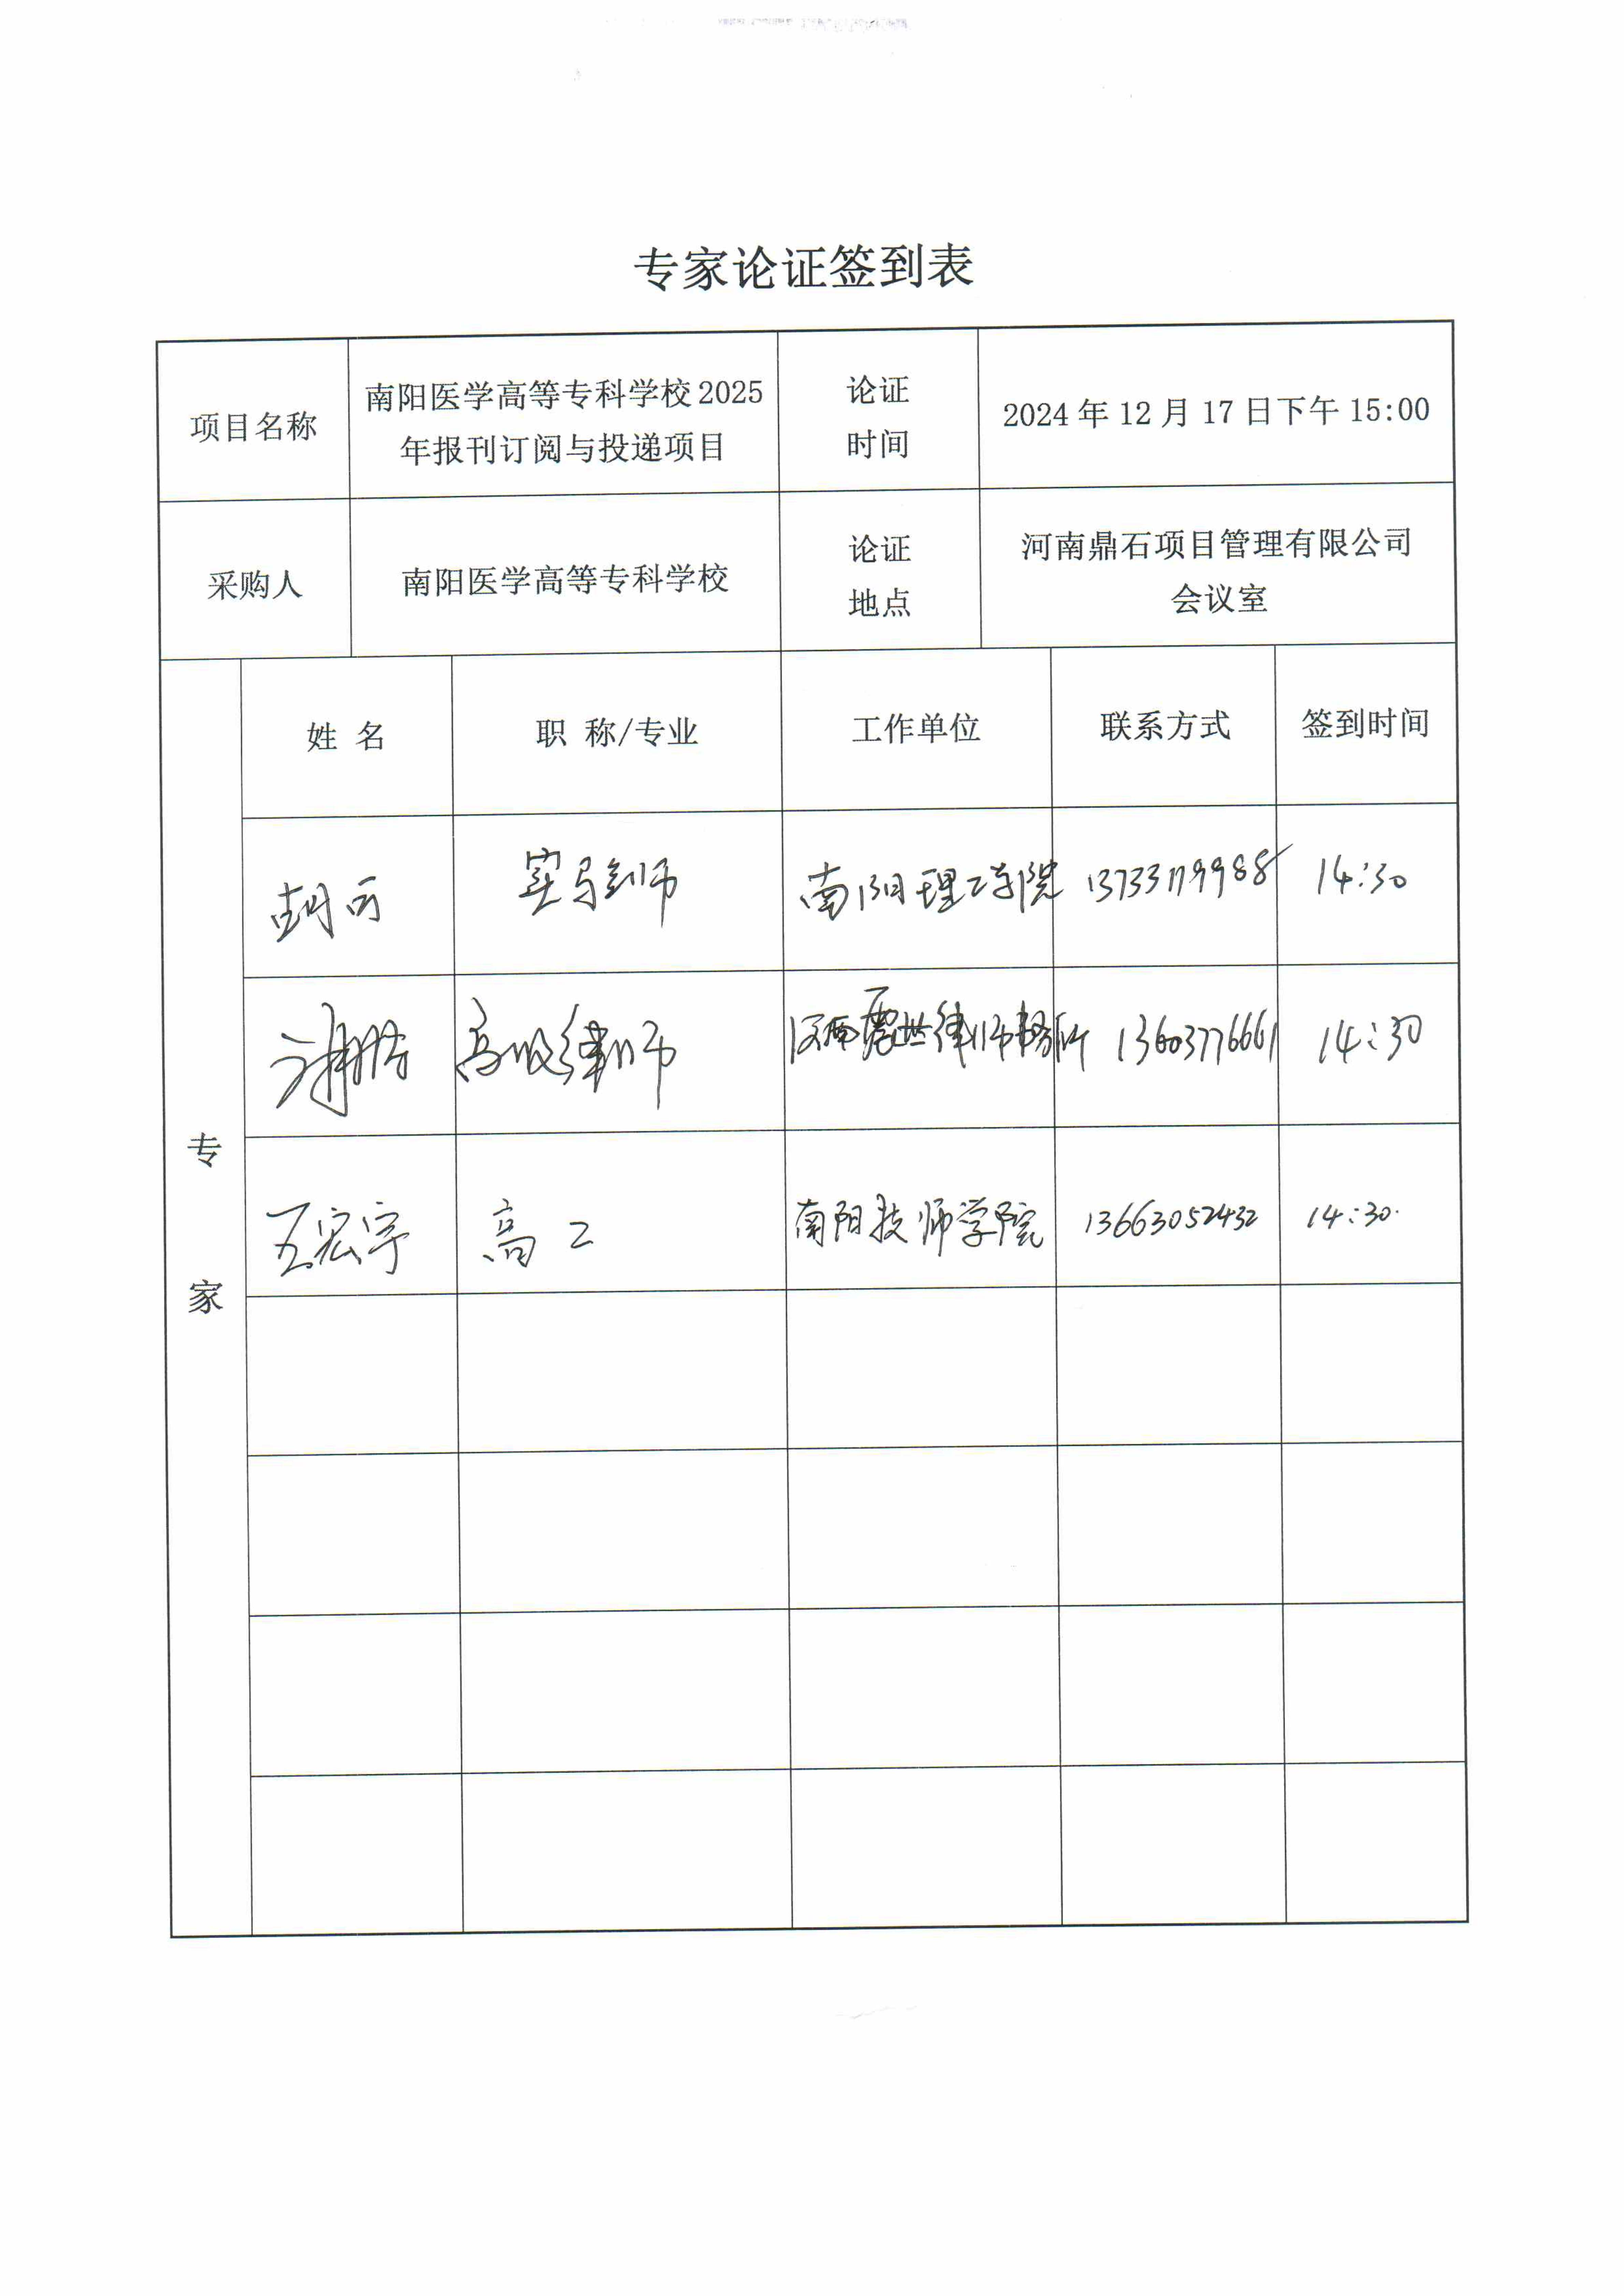 专家论证签到表
项目名称
南阳医学高等专科学校2025
年报刊订阅与投递项目
论证
时间
2024年12月17日下午15:00
采购人
南阳医学高等专科学校
论证
地点
河南鼎石项目管理有限公司
会议室
专
家
姓 名
职 称/专业
工作单位
联系方式
签到时间
胡
实验师
南阳理工学院
13733119988
14:30
高级律师
河南 世律师事务所
13603776661
14:30
王宏宇
高工
南阳技师学院
13663052432
14:30